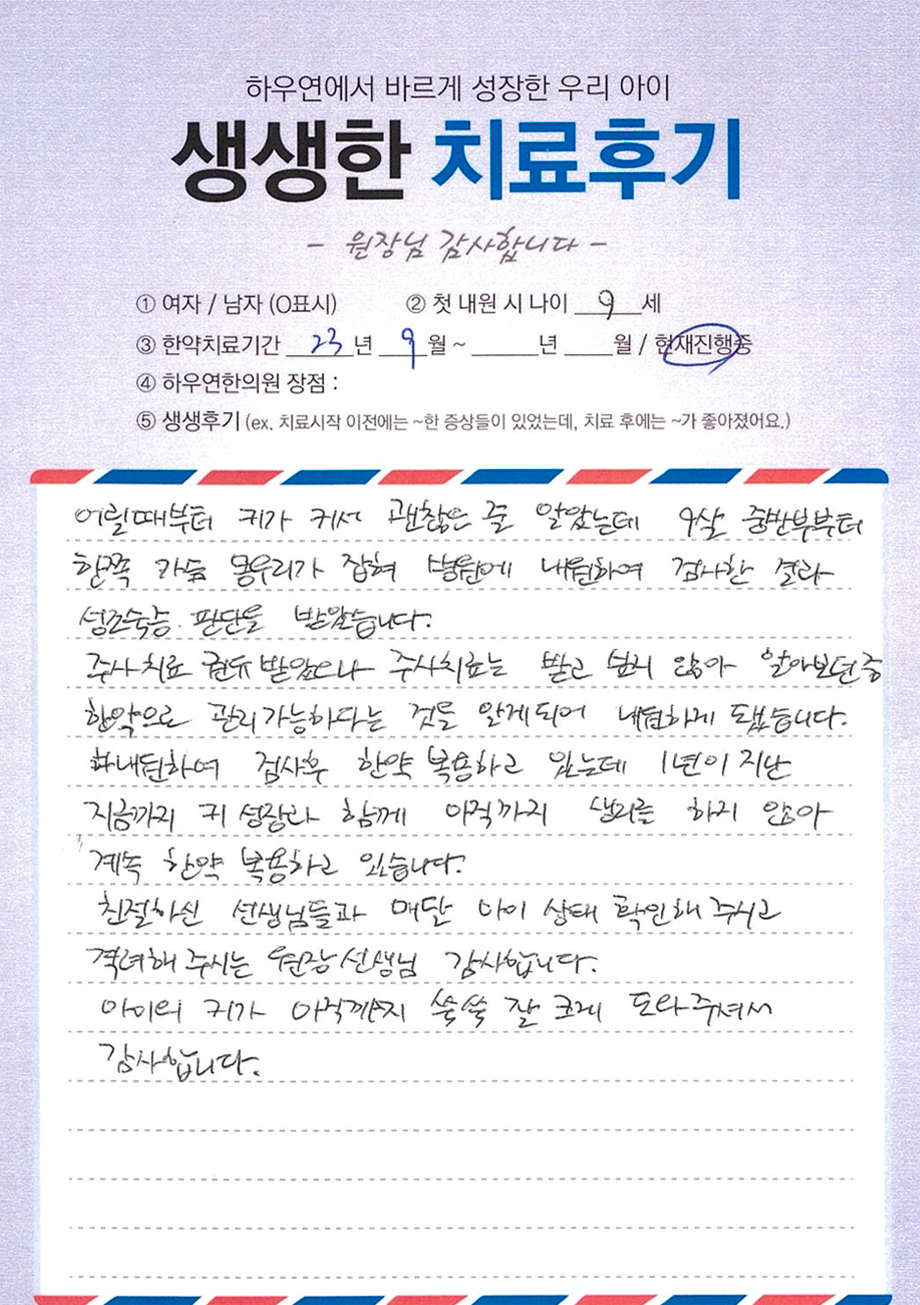 하우연에서 바르게 성장한 우리 아이
생생한 치료후기
- 원장님 감사합니다 -
① 여자 / 남자 (O표시) ② 첫 내원 시 나이 9 세
③ 한약치료기간 23 년 9 월 ~ ______년 ____월 / 현재진행중
④ 하우연한의원 장점 :
⑤ 생생후기 (ex. 치료시작 이전에는 ~한 증상들이 있었는데, 치료 후에는 ~가 좋아졌어요.)
어릴때부터 키가 커서 괜찮은 줄 알았는데 9살 중반부부터
한쪽 가슴 몽우리가 잡혀 병원에 내원하여 검사한 결과
성조숙증 판단을 받았습니다.
주사치료 권유 받았으나 주사치료는 받고 싶지 않아 알아보던중
한약으로 관리가능하다는 것을 알게되어 내원하게 됐습니다.
내원하여 검사후 한약 복용하고 있는데 1년이 지난
지금까지 키 성장과 함께 아직까지 생리를 하지 않아
계속 한약 복용하고 있습니다.
친절하신 선생님들과 매달 아이 상태 확인해 주시고
격려해 주시는 원장선생님 감사합니다.
아이의 키가 아직까지 쑥쑥 잘 크게 도와주셔서
감사합니다.